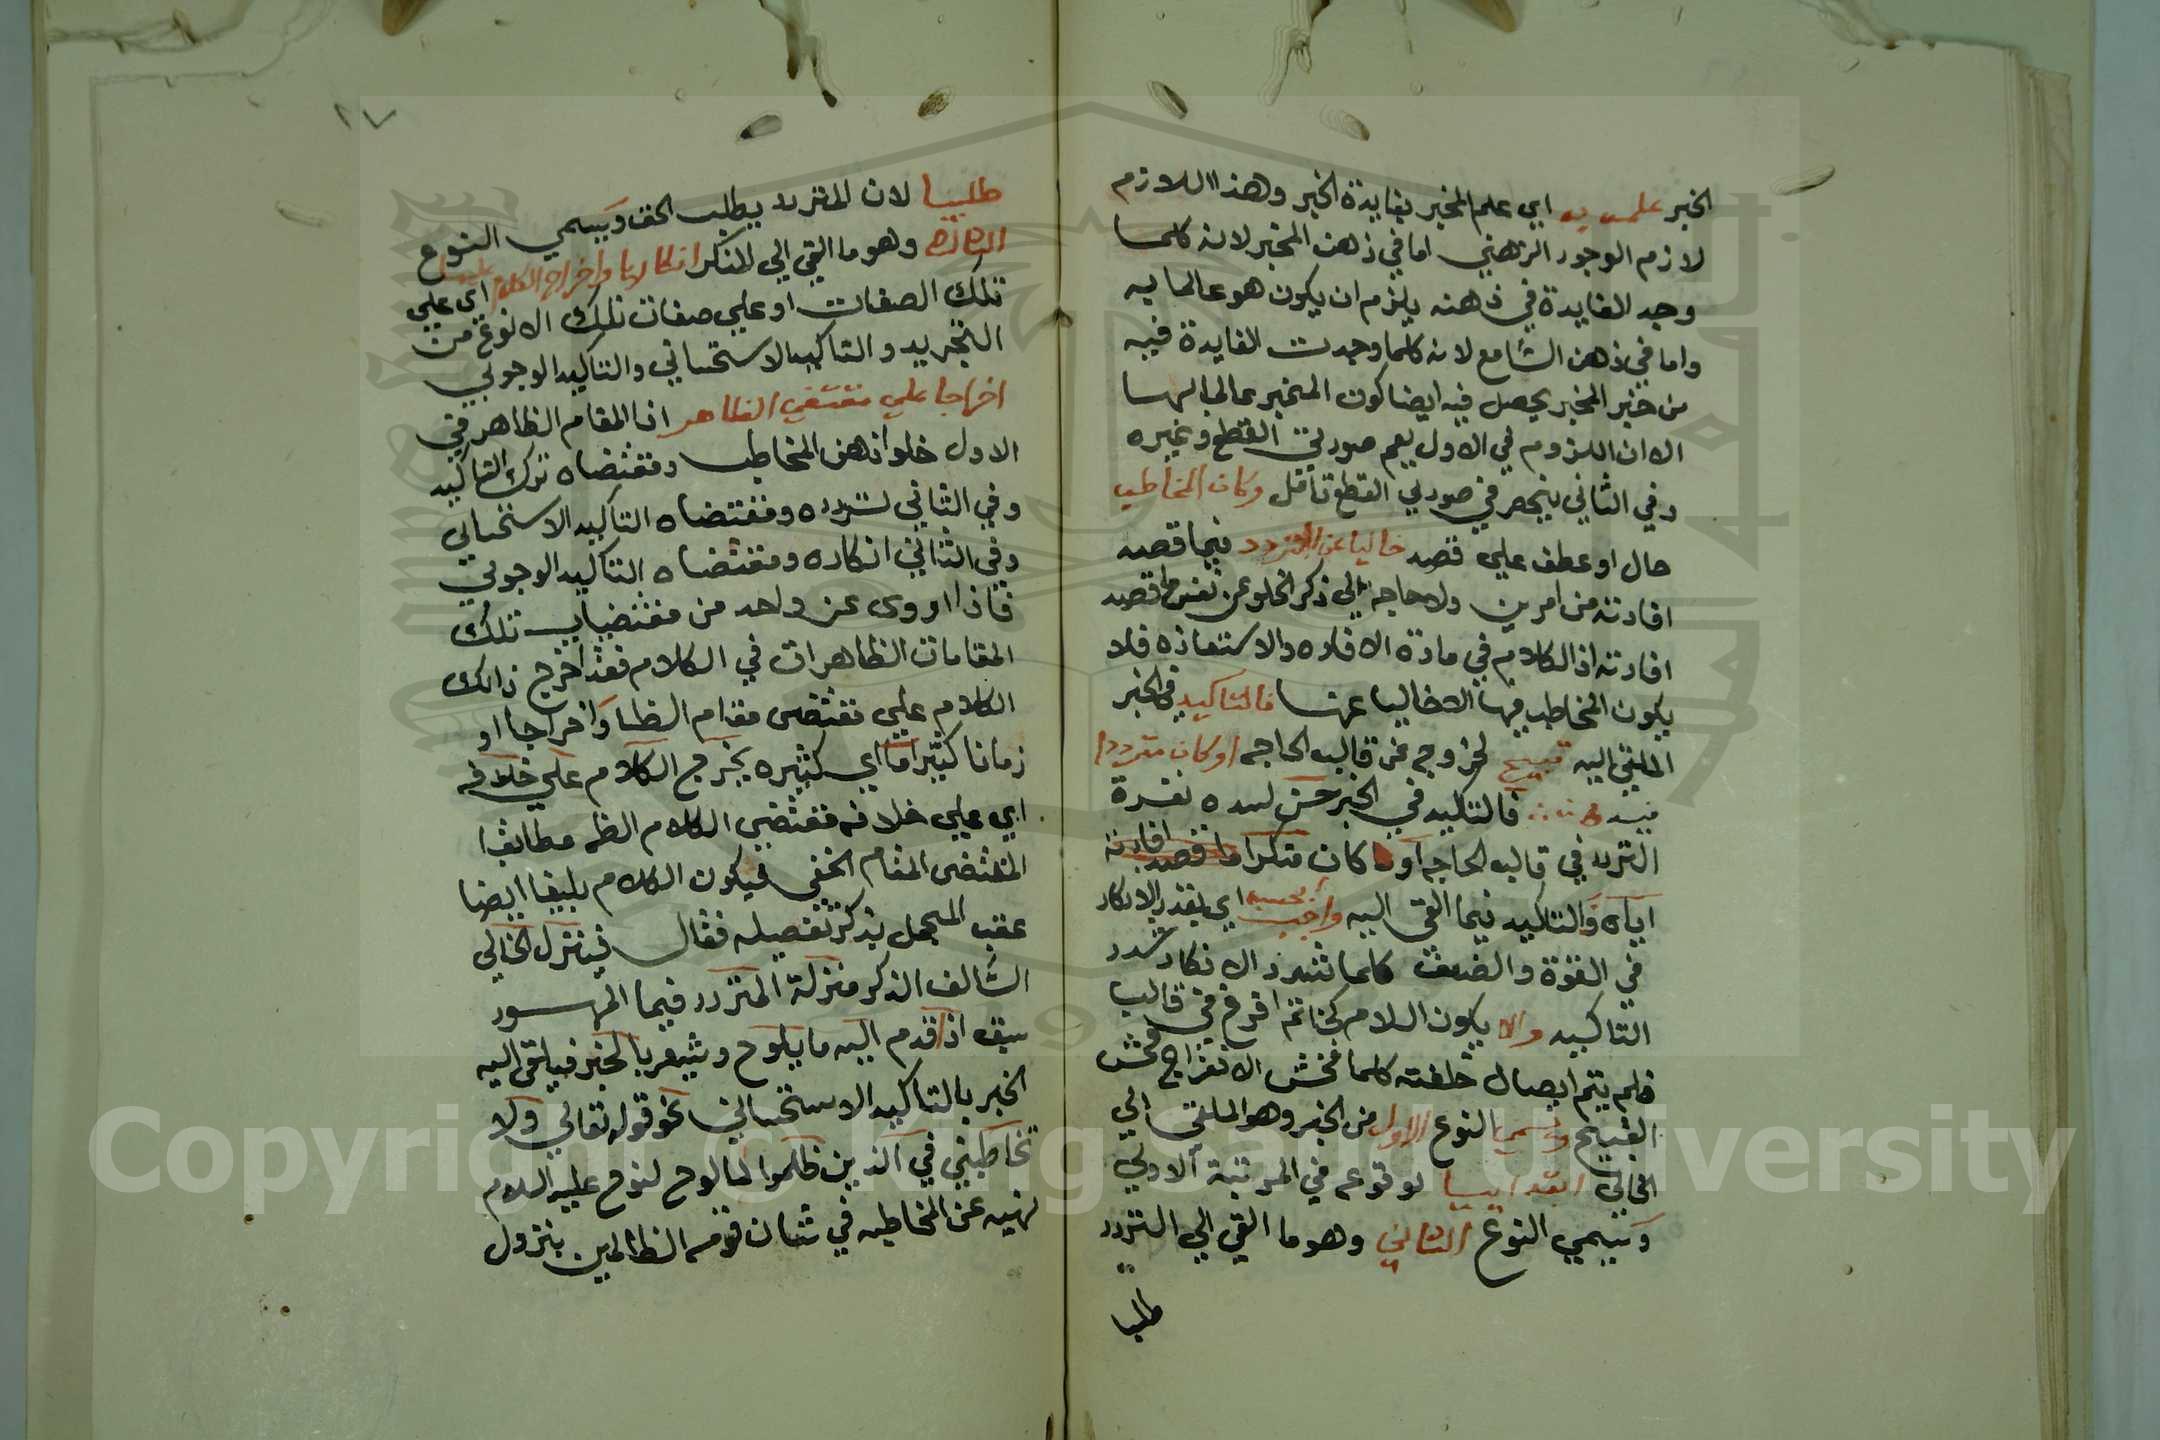 الخبر علمه به اي علم المخبر بفايدة الخبر وهذا اللازم
لازم الوجود الذهني اما في ذهن المخبر لانه كلما
وجد الفايدة في ذهنه يلزم ان يكون هو عالما به
واما في ذهن السامع لانه كلما وجدت الفايدة فيه
من خبر المخبر يحصل فيه ايضا كون المخبر عالما بها
الا ان اللزوم في الاول يعم صورتي القطع وغيره
وفي الثاني ينحصر في صورتي القطع تامل وكان المخاطب
حال او عطف علي قصد خاليا عن التردد فيما قصد
افادته من امرين ولا حاجة الي ذكر الخلو عن نفس ما قصد
افادته اذ الكلام في مادة الافاده والاستفاده فلا
يكون المخاطب فيها الا خاليا عنها فالتاكيد في الخبر
الملقي اليه قبيح لخروجه عن قالب الحاجه او كان مترددا
فيه فالتاكيد في الخبر حسن لسده نقرة
التردد في قالب الحاجه او كان منكرا ما قصد افادته
اياه والتاكيد فيما القي اليه واجب بحسب اي بقدر الانكار
في القوة والضعف كلما اشتد الانكار شدد
التاكيد والا يكون الكلام كخاتم افرغ في قالب
فلم يتم ايصال حلقته كلما فحش الانفراج فحش
القبيح ويسمي النوع الاول من الخبر وهو الملقي الي
الخالي ابتدائيا لوقوعه في المرتبة الاولي
ويسمي النوع الثاني وهو ما القي الي المتردد
طلبيا
٢٧
طلبيا لان المتردد يطلب الحق ويسمي النوع
الثالث وهو ما القي الي المنكر انكاريا واخراج الكلام علي اي علي
تلك الصفات او علي صفات تلك الانوع من
التجريد والتاكيد الاستحساني والتاكيد الوجوبي
اخراجا علي مقتضي الظاهر اذ المقام الظاهر في
الاول خلو ذهن المخاطب ومقتضاه ترك التاكيد
وفي الثاني تردده ومقتضاه التاكيد الاستحساني
وفي الثالث انكاره ومقتضاه التاكيد الوجوبي
فاذا اوروي عن واحد من مقتضيات تلك
المقامات الظاهرات في الكلام فقد اخرج ذالك
الكلام علي مقتضي مقام الظا واخراجا او
زمانا كثيرا ما اي كثيره يخرج الكلام علي خلافه
اي علي خلاف مقتضي الكلام الظه مطابقا
المقتضي المقام الخفي فيكون الكلام بليغا ايضا
عقب المجمل بذكر تفصيله فقال فينزل الخالي
السالف الذكر منزلة المتردد فيما المهسور
سبق اذا قدم اليه ما يلوح ويشعر بالخبر فيلقي اليه
الخبر بالتاكيد الاستحساني نحو قوله تعالي ولا
تخاطبني في الذين ظلموا لما لوح لنوح عليه السلام
نهيه عن المخاطبه في شان قومه الظالمين بنزول
Copyright © King Saud University